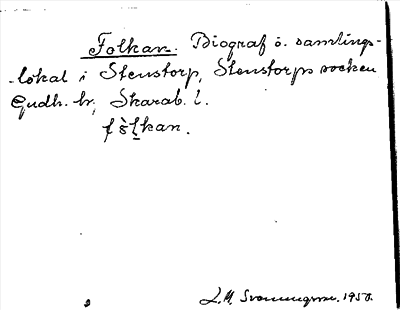 Folkan. Biograf o. samlings-
-lokal i Stenstorp, Stenstorps socken
Gudh. hr, Skarab. l.
fòlkan.
L. M. 1950.